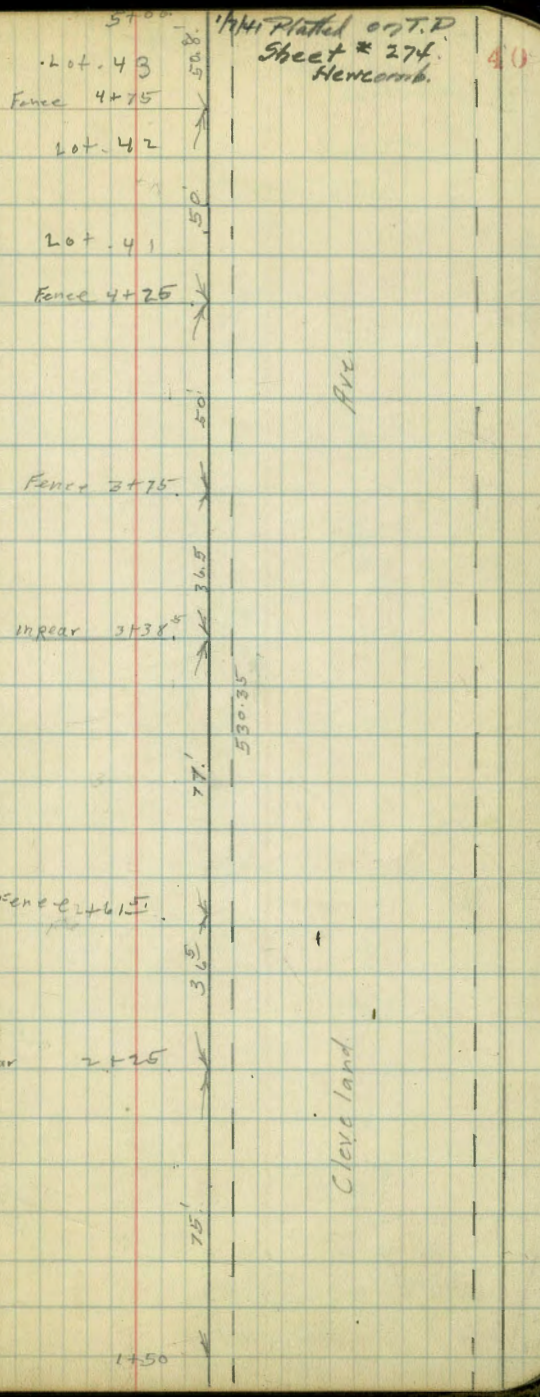 5+00.
1/7/41 Platted on T.P.
Sheet # 274.
Newcomb.
40
50.8'
Lot. 43
Fence 4+75
Lot. 42
50'
Lot. 41
Fence 4+25
Ave.
50'
Fence 3+75.
36.5
3+38.5
530.35
77'
Fence 2+61.5
36.5
2+25
Cleveland
75'
1+50